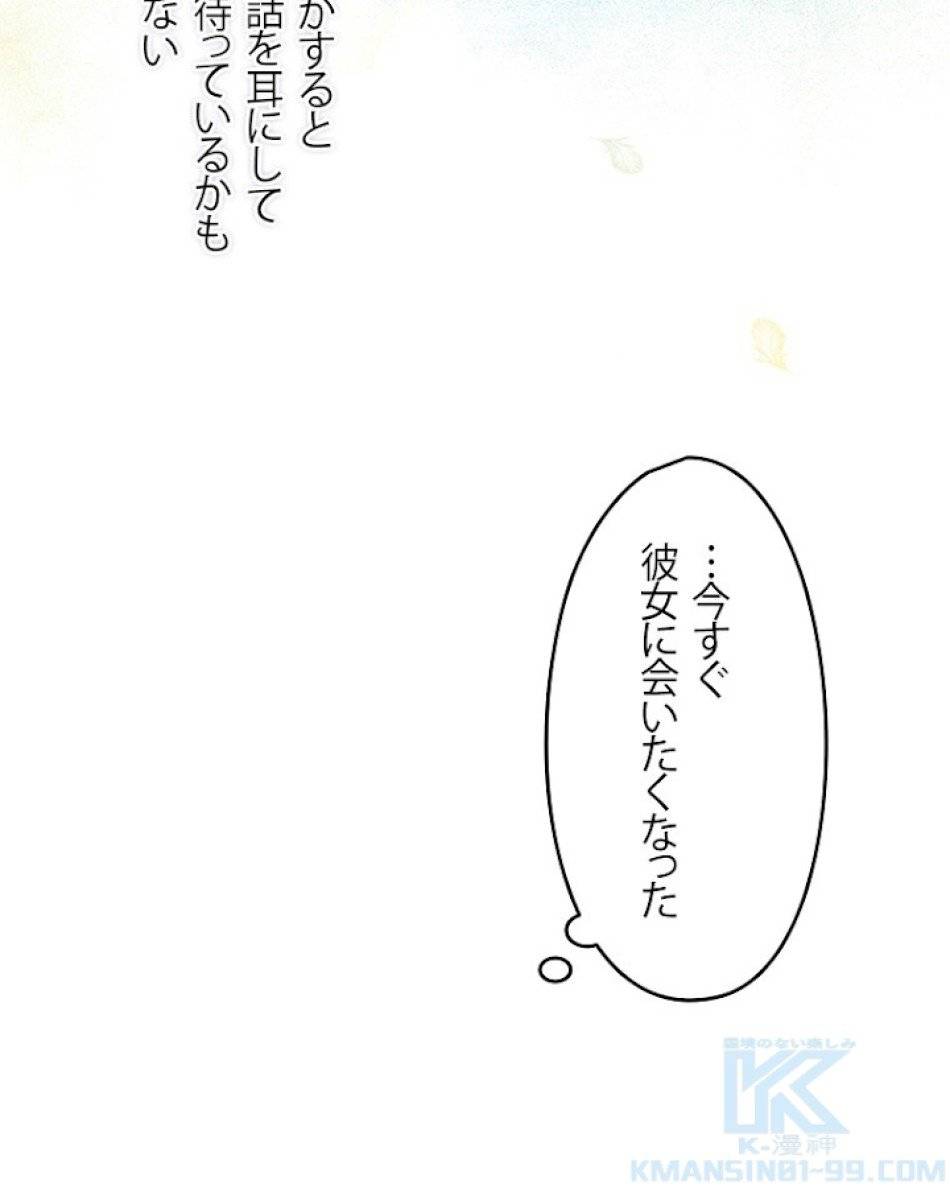 かすると
話を耳にして
待っているかも
ない
…今すぐ
彼女に会いたくなった
国境のない楽しみ
K-漫神
KMANSIN01-99.COM